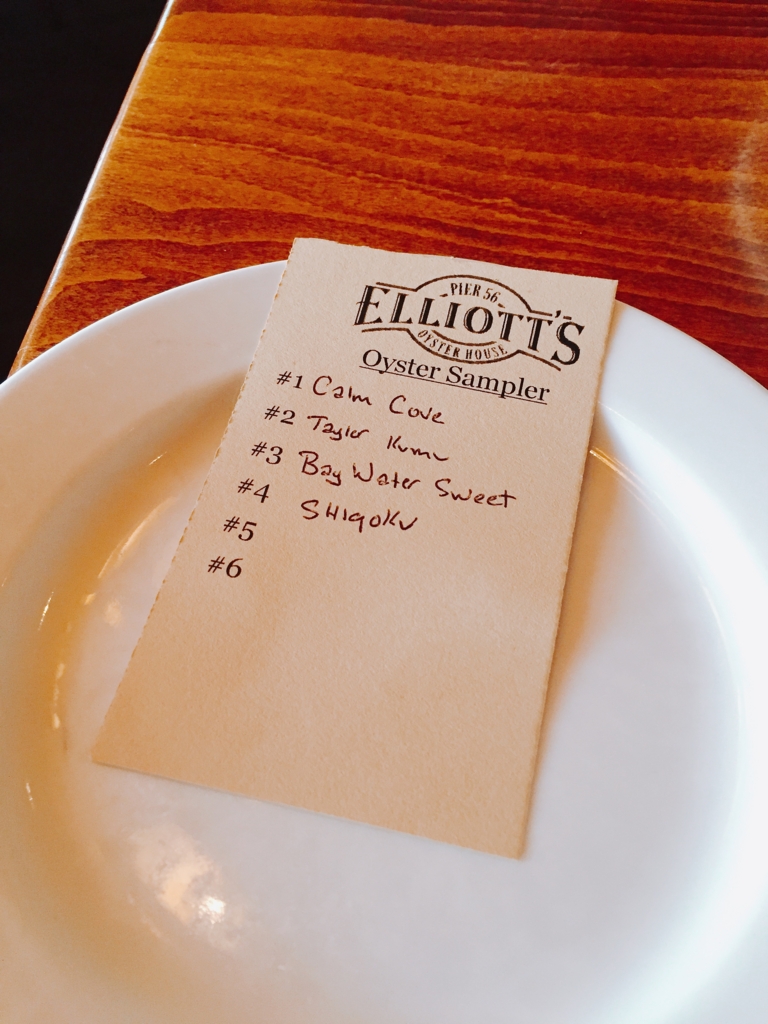 PIER 56
ELLIOTT'S
OYSTER HOUSE
Oyster Sampler
#1 Calm Cove
#2 Taylor Kumu
#3 Bay Water Sweet
#4 SHIgoKu
#5
#6